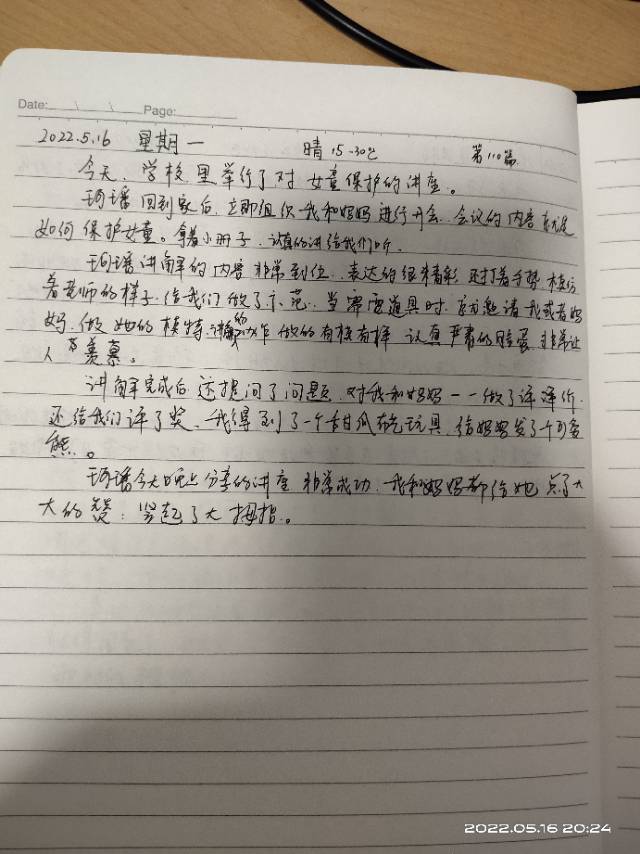 Date: \ \ Page:
2022.5.16 星期一 晴 15-30℃ 第110篇.
今天、学校里举行了对女童保护的讲座。
回到家后,立即组织我和妈妈进行开会,会议的内容就是
如何保护女童。拿着小册子,认真的讲给我们听.
讲解的内容非常到位,表达的很精彩,还打着手势,模仿
着老师的样子,给我们做了示范,当需要道具时,就邀请我或者妈
妈,做她的模特,的动作做的有模有样,认真严肃的 非常让
人羡慕。
讲解完成后,还提问了问题,对我和妈妈一一做了评价,
还给我们评了奖,我得到了一个甜瓜 玩具,给妈妈发了个可爱
熊。
今天晚上分享的讲座非常成功,我和妈妈都给她点了大
大的赞,竖起了大拇指。
2022.05.16 20:24